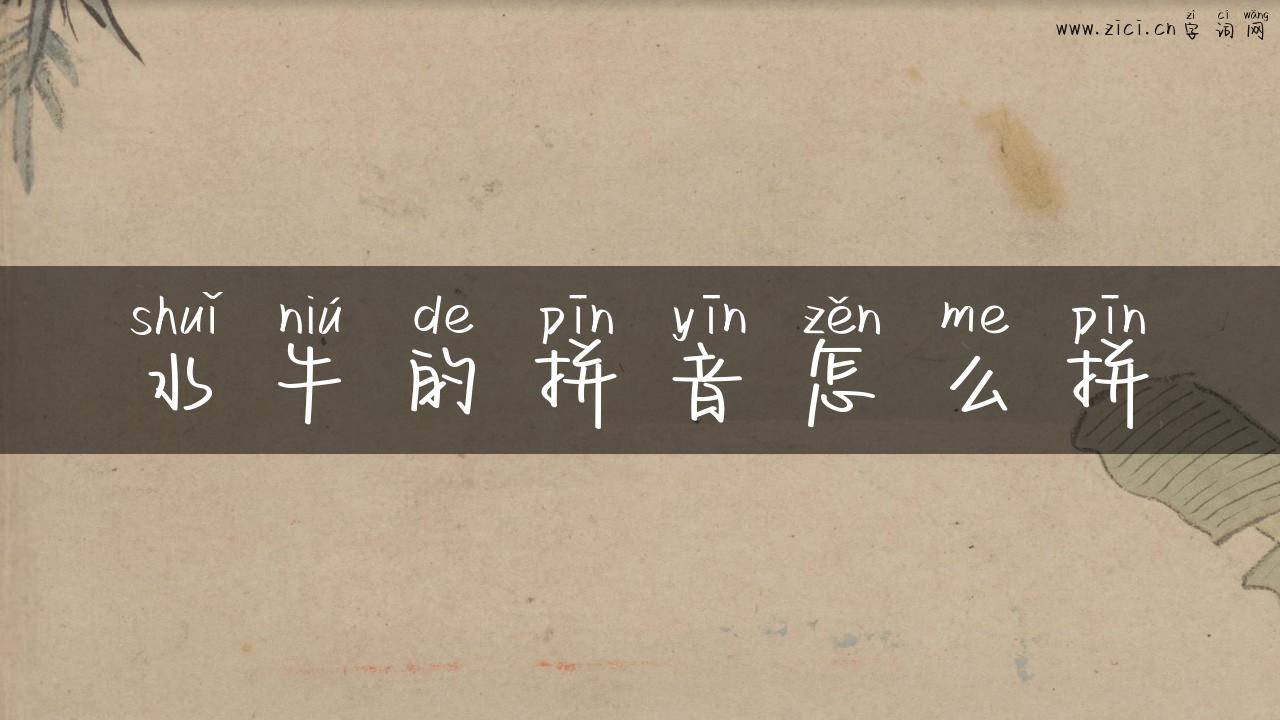 zì cí wǎng
www.zici.cn 字词网
shuǐ niú de pīn yīn zěn me pīn
水牛的拼音怎么拼